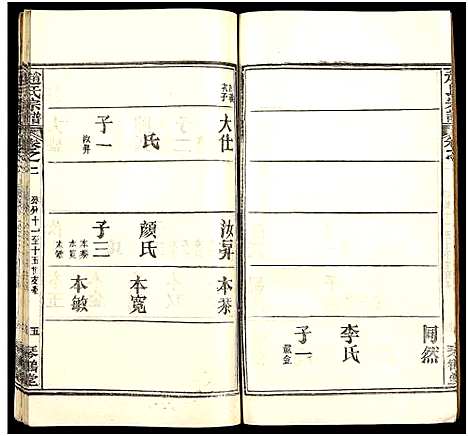 同然
李氏
子一
大仕
氏
子一
汝昇
汝昇
顏氏
子三
本泰
本寬
本敏
本泰
本寬
本敏
趙氏宗譜
卷之二
五
琴鶴堂